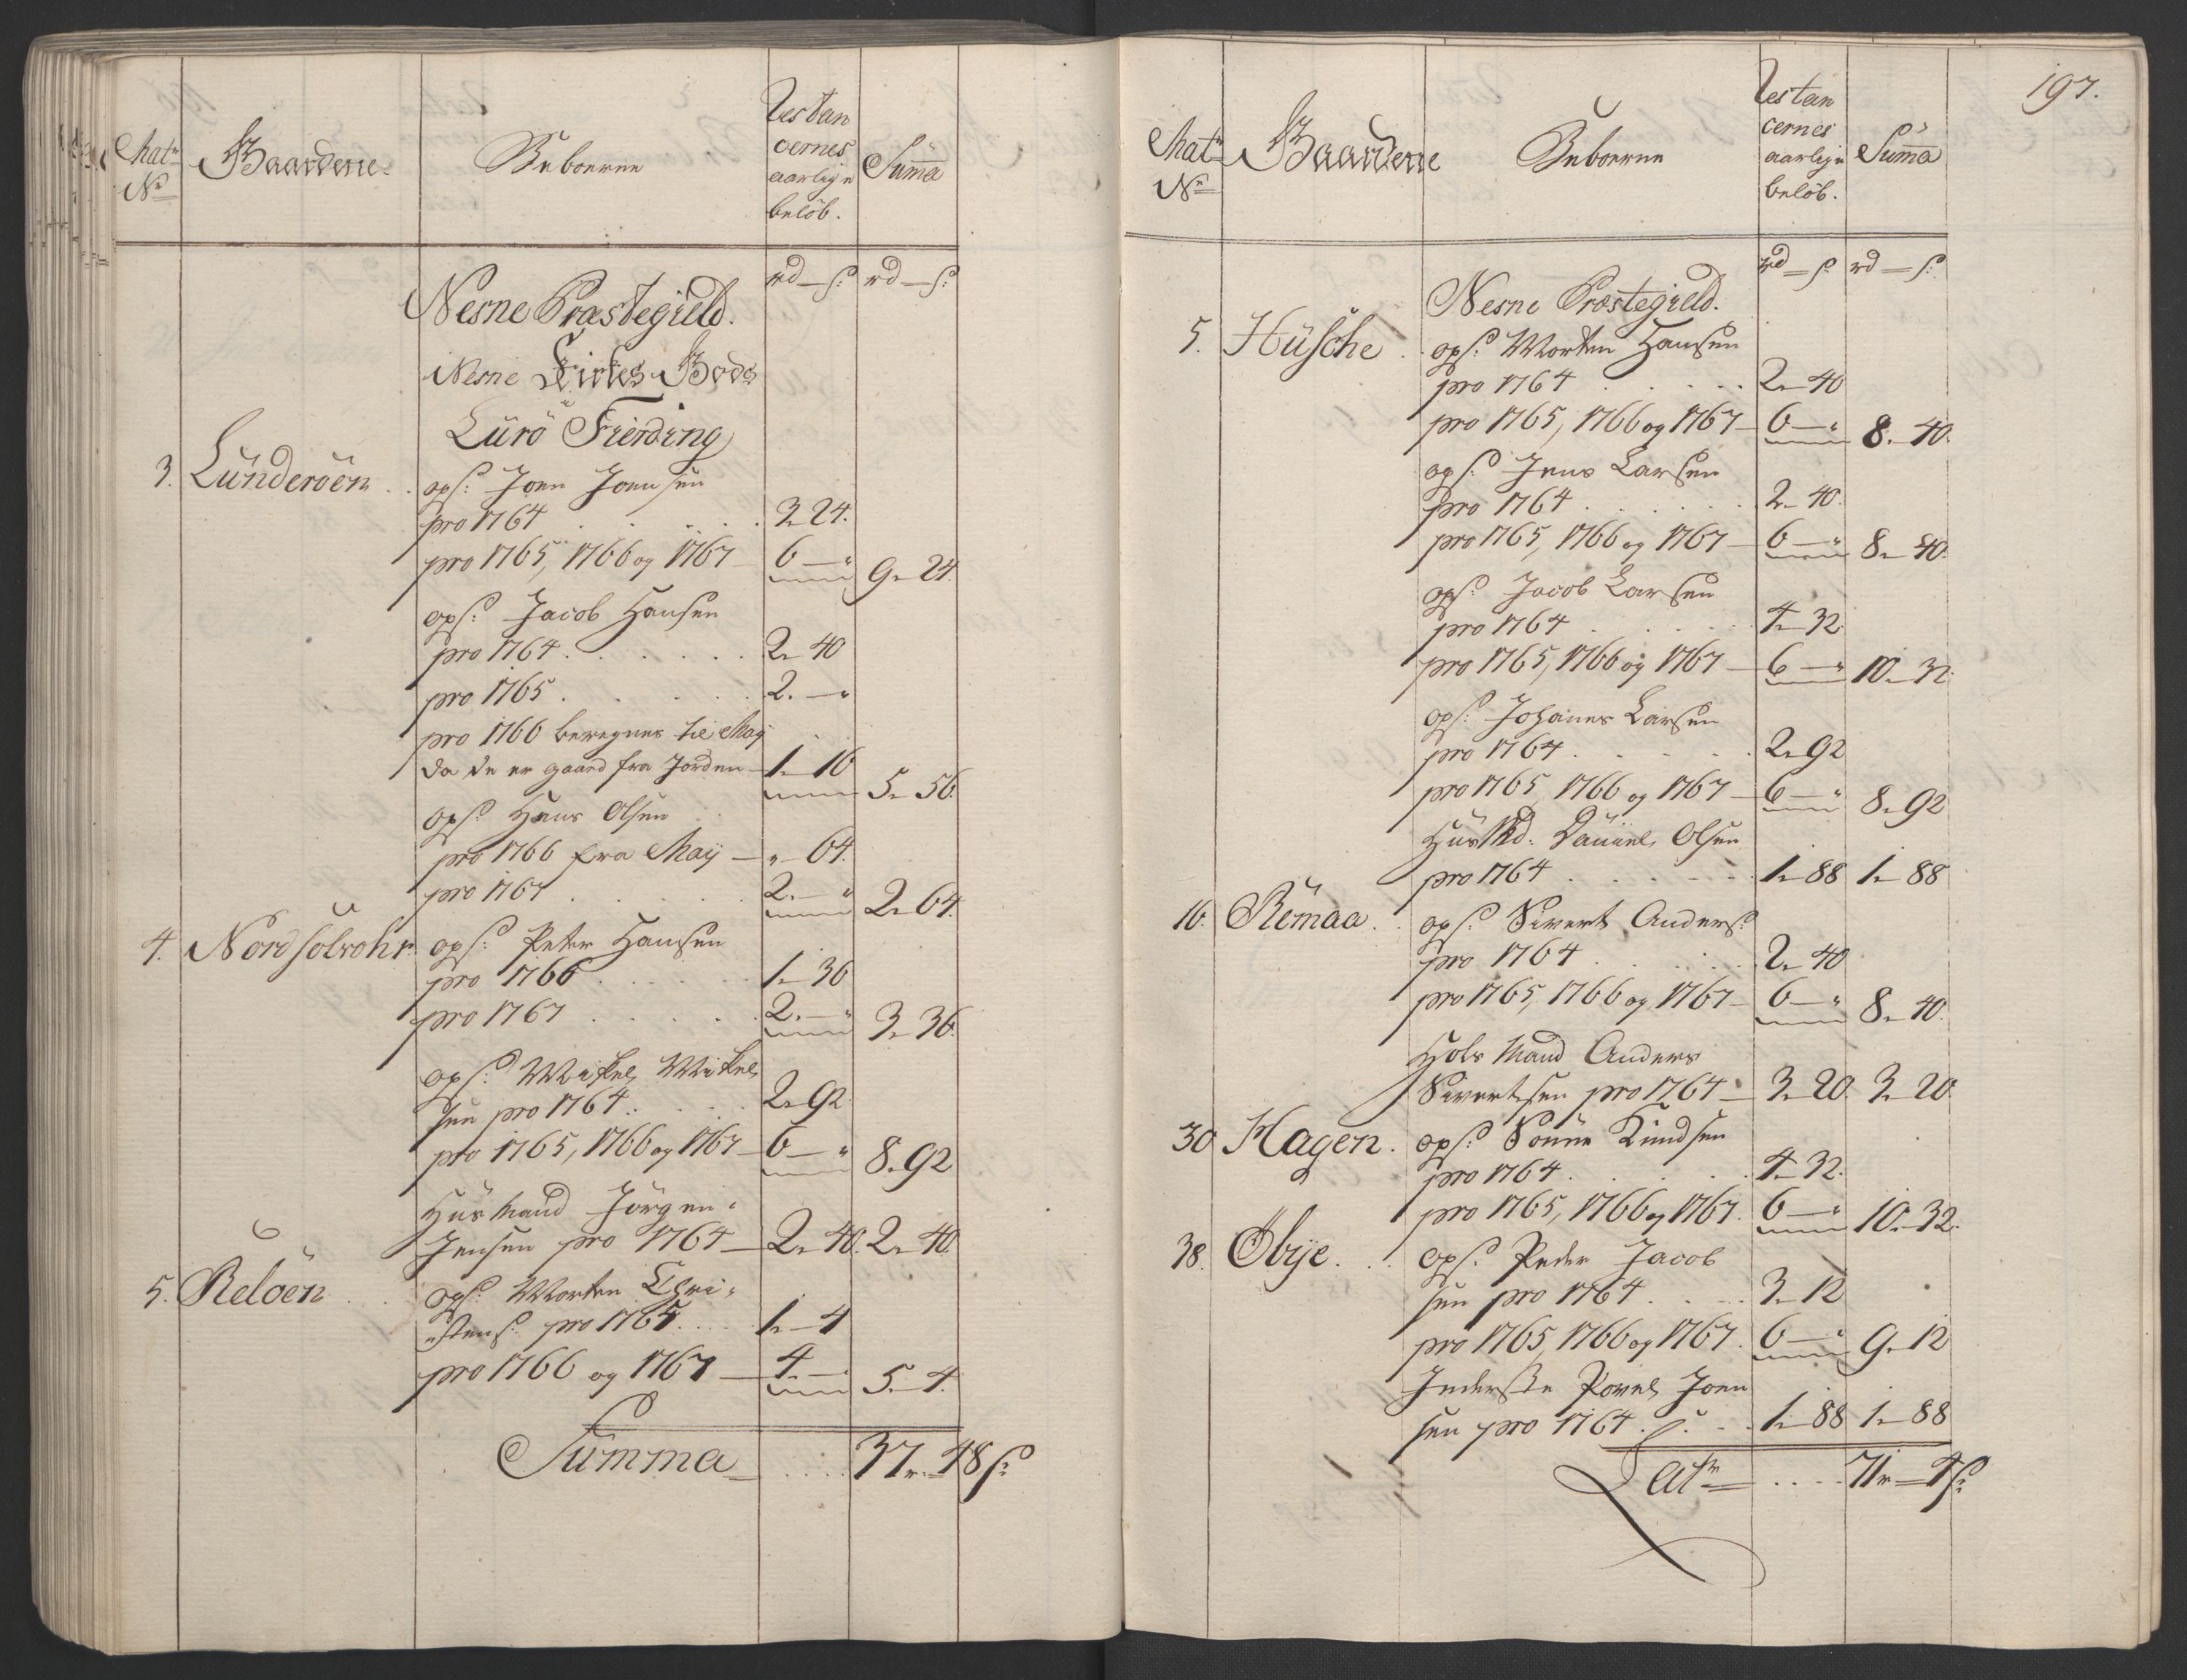 Matr
No
Gaardene
Beboerne
Restan
cernes
aarlige
beløb.
Summa
rd — s: rd — s:
Nesne Præstegield.
Nesne Kirkes Bøds
Lurö Fierding
3. Lünderöen . . ops: Joen Joensen
pro 1764 . . . . . 3 24.
pro 1765, 1766 og 1767 — 6 — " 9 - 24.
ops: Jacob Hansen
pro 1764 . . . . . . 2 - 40
pro 1765 . . . . . 2. — "
pro 1766 beregnes til May
da de er gaard fra Jorden — 1 - 16 5 - 56.
ops: Hans Olsen
pro 1766 fra Maÿ — " - 64.
pro 1767 . . . . . 2. — " 2 - 64.
4. Nord solvohr ops: Peter Hansen
pro 1766 . . . . . 1 - 36
pro 1767 . . . . . 2. — " 3 - 36.
ops: Mikel Mikel
sen pro 1764 . . . . . 2 - 92.
pro 1765, 1766 og 1767 — 6 — " 8 - 92
Husmand Jörgen
Jensen pro 1764 — 2 - 40. 2 - 40.
5. Reloën . . ops: Morten Chri-
stens: pro 1765 . . . . 1 - 4
pro 1766 og 1767 — 4. — 5 - 4.
Summa . . . . 37 r - 48 s:
197.
Matr
No
Gaardene
Beboerne
Restan
cernes
aarlige
beløb.
Summa
rd — s: rd — s:
Nesne Præstegield.
5. Hüsche . . ops: Morten Hansen
pro 1764 . . . . . 2 - 40
pro 1765, 1766 og 1767 — 6 — " 8 - 40.
ops: Jens Larsen
pro 1764 . . . . . . 2 - 40.
pro 1765, 1766 og 1767 — 6 — " 8 - 40.
ops: Jacob Larsen
pro 1764 . . . . . 4 - 32.
pro 1765, 1766 og 1767 — 6 — " 10 - 32.
ops: Johanes Larsen
pro 1764 . . . . . 2 - 92
pro 1765 1766 og 1767 — 6 — " 8 - 92
Husmd: Daniel Olsen
pro 1764 . . . . . 1 - 88 1 - 88
16. Remaa . . ops: Sivert Anders:
pro 1764 . . . . . 2 - 40
pro 1765, 1766 og 1767 — 6 — " 8 - 40.
Hols Mand Anders
Sivertsen pro 1764 — 3 - 20. 3 - 20.
30 Hagen . ops: Sonne Knudsen
pro 1764 . . . . . 4 - 32.
pro 1765, 1766 og 1767. 6 — " 10 - 32.
38. Öbye . . . ops: Peder Jacob
sen pro 1764 . . . . 3 - 12
pro 1765, 1766 og 1767. 6 — " 9 - 12
Inderste Povel Joen
sen pro 1764 . . . . 1 - 88 1 - 88
Latr . . . . 71 r - 4 s: